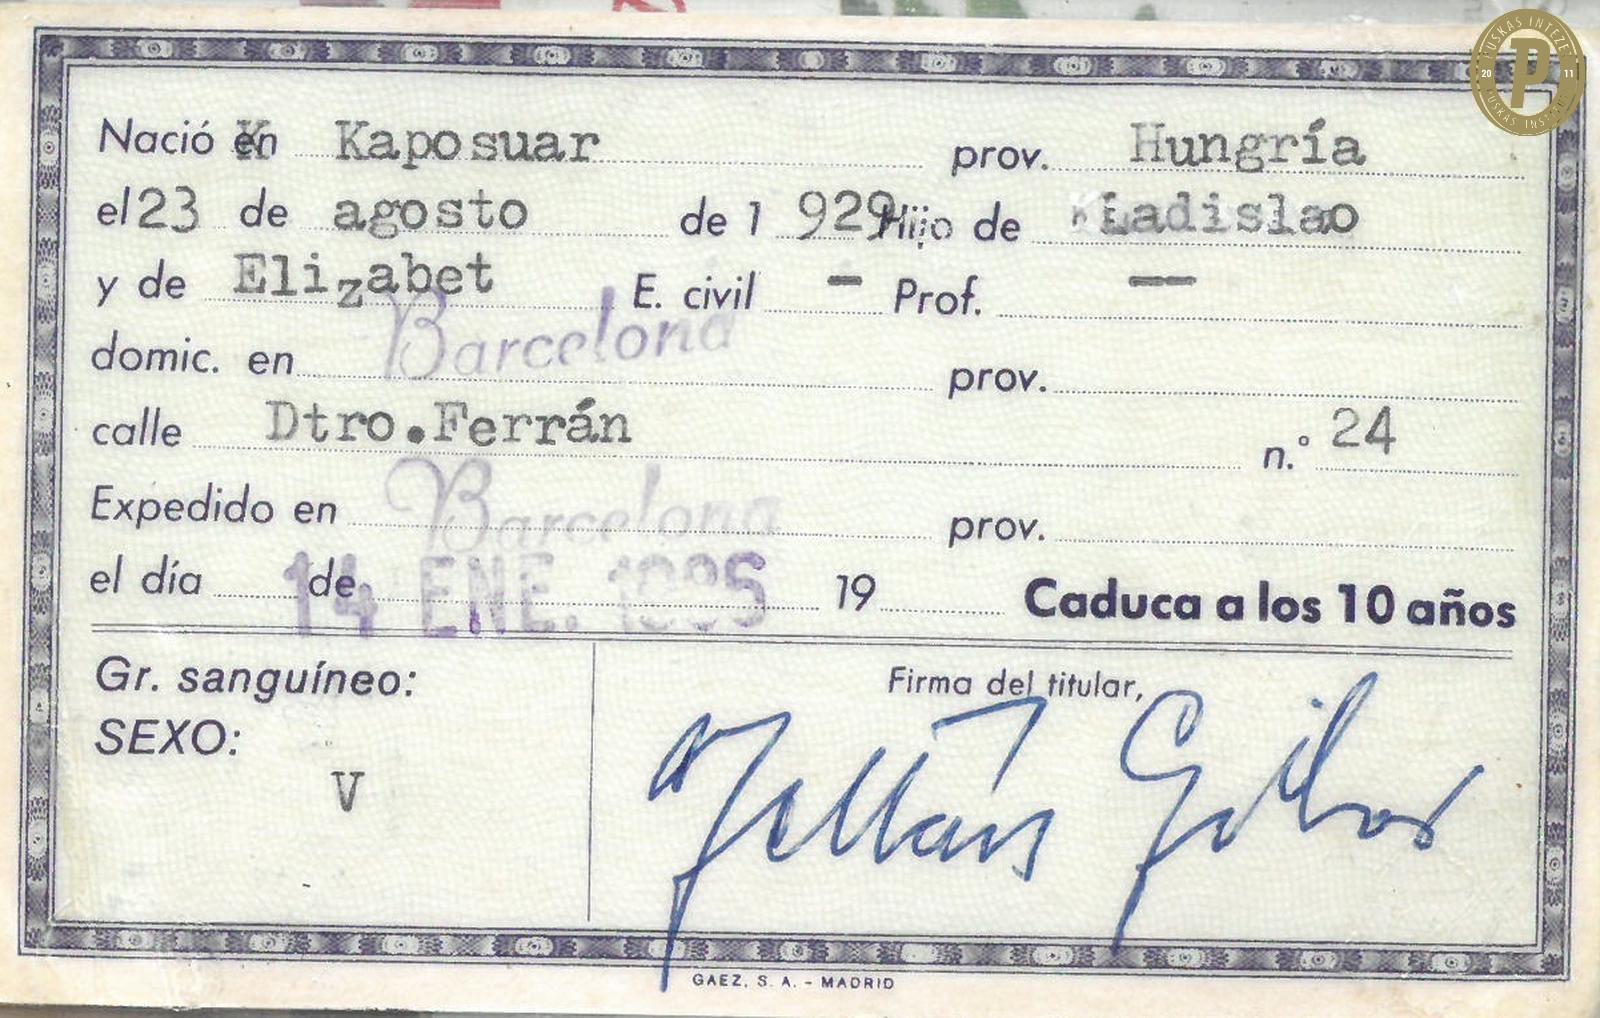 PUSKÁS INTÉZET
20 P 11
PUSKÁS INSTITUTE
Nació en Kaposuar prov. Hungría
el 23 de agosto de 1 929 Hijo de Ladislao
y de Elizabet E. civil — Prof. —
domic. en Barcelona prov.
calle Dtro.Ferrán n.º 24
Expedido en Barcelona prov.
el día de 14 ENE. 1985 19 Caduca a los 10 años
Gr. sanguíneo:
Firma del titular,
SEXO:
V
GAEZ, S. A. - MADRID